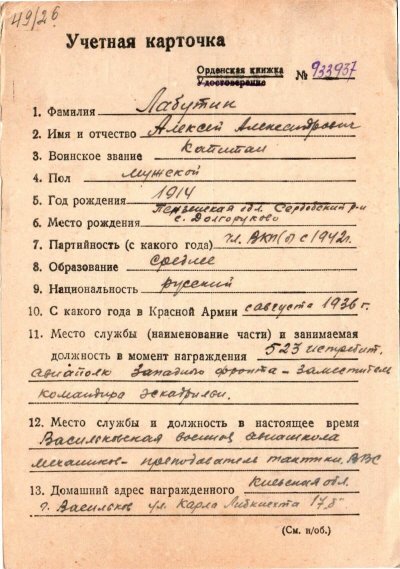 49/26
Учетная карточка
Орденская книжка
Удостоверение № 933937
1. Фамилия Лабутин
2. Имя и отчество Алексей Александрович
3. Воинское звание Капитан
4. Пол мужской
5. Год рождения 1914
Пензенская обл. Сердобский р-н
6. Место рождения с. Долгоруково
7. Партийность (с какого года) чл. ВКП(б) с 1942г.
8. Образование среднее
9. Национальность русский
10. С какого года в Красной Армии с августа 1936 г.
11. Место службы (наименование части) и занимаемая
должность в момент награждения 523 истребит.
авиаполк Западного фронта – заместитель
командира эскадрильи.
12. Место службы и должность в настоящее время
Васильковская военная авиашкола
механиков – преподаватель тактики ВВС
13. Домашний адрес награжденного Киевская обл.
г. Васильков ул. Карла Либкнехта 17,,б"
(См. н/об.)